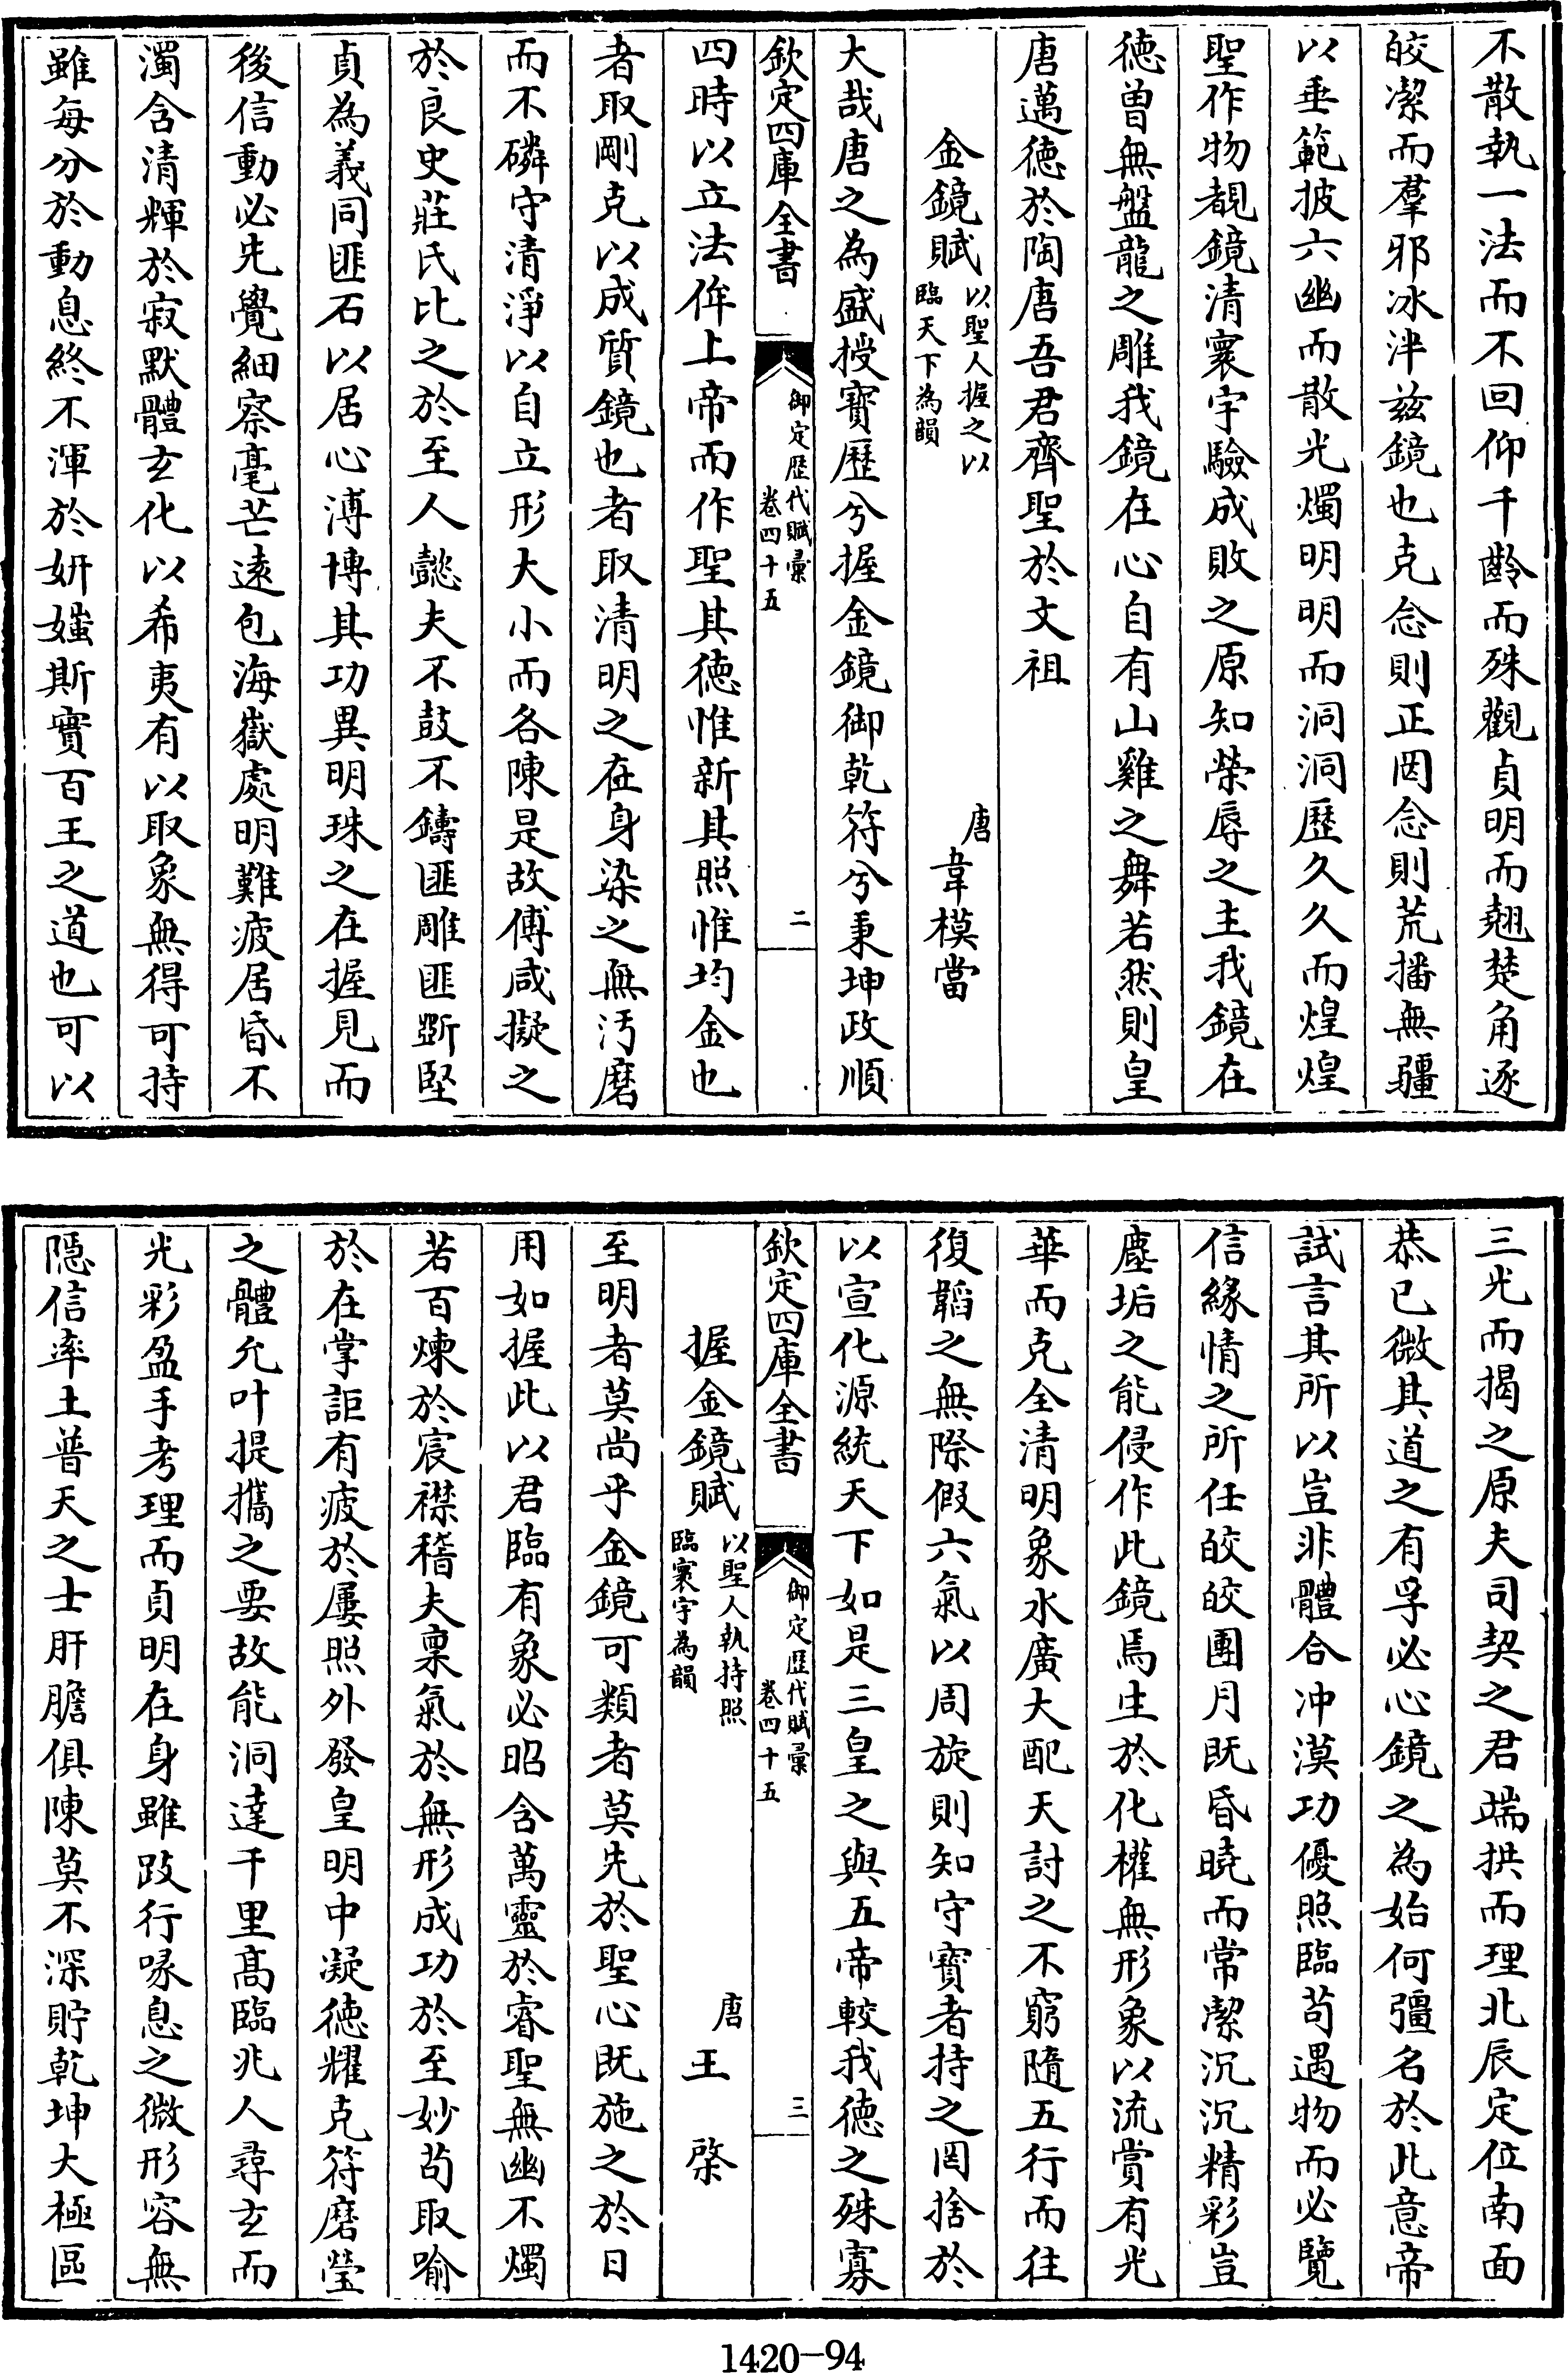 不散執一法而不回仰千齡而殊觀貞明而翹楚角逐
皎潔而羣邪冰泮茲鏡也克念則正罔念則荒播無疆
以垂範披六幽而散光燭明明而洞洞歷久久而煌煌
聖作物覩鏡清寰宇驗成敗之原知榮辱之主我鏡在
德曾無盤龍之雕我鏡在心自有山雞之舞若然則皇
唐邁德於陶唐吾君齊聖於文祖
金鏡賦
以聖人握之以
臨天下為韻
唐
韋模當
大哉唐之為盛授寶歷兮握金鏡御乾符兮秉坤政順
欽定四庫全書
御定歷代賦彙
卷四十五
二
四時以立法侔上帝而作聖其德惟新其照惟均金也
者取剛克以成質鏡也者取清明之在身染之無汚磨
而不磷守清淨以自立形大小而各陳是故傅咸擬之
於良史莊氏比之於至人懿夫不鼓不鑄匪雕匪斵堅
貞為義同匪石以居心溥博其功異明珠之在握見而
後信動必先覺細察毫芒遠包海嶽處明難疲居昏不
濁含清輝於寂默體玄化以希夷有以取象無得可持
雖每分於動息終不渾於妍媸斯實百王之道也可以
三光而揭之原夫司契之君端拱而理北辰定位南面
恭已微其道之有孚必心鏡之為始何彊名於此意帝
試言其所以豈非體合冲漠功優照臨苟遇物而必覽
信緣情之所任皎皎團月既昏曉而常潔沉沉精彩豈
塵垢之能侵作此鏡焉生於化權無形象以流賞有光
華而克全清明象水廣大配天討之不窮隨五行而往
復韜之無際假六氣以周旋則知守寶者持之罔捨於
以宣化源統天下如是三皇之與五帝較我德之殊寡
欽定四庫全書
御定歷代賦彙
卷四十五
三
握金鏡賦
以聖人執持照
臨寰宇為韻
唐
王棨
至明者莫尚乎金鏡可類者莫先於聖心既施之於日
用如握此以君臨有象必昭含萬靈於睿聖無幽不燭
若百煉於宸襟稽夫稟氣於無形成功於至妙茍取喻
於在掌詎有疲於屢照外發皇明中凝德耀克符磨瑩
之體允叶提攜之要故能洞達千里高臨兆人尋玄而
光彩盈手考理而貞明在身雖跂行喙息之微形容無
隠信率土普天之士肝膽俱陳莫不深貯乾坤大極區
1420-94